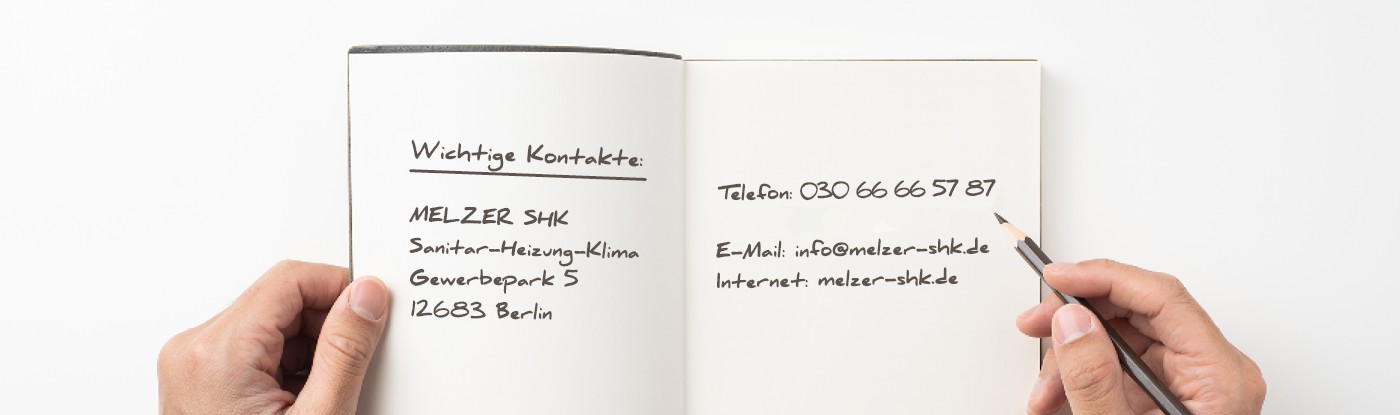 Wichtige Kontakte:
MELZER SHK
Sanitär-Heizung-Klima
Gewerbepark 5
12683 Berlin
Telefon: 030 66 66 57 87
E-Mail: info@melzer-shk.de
Internet: melzer-shk.de